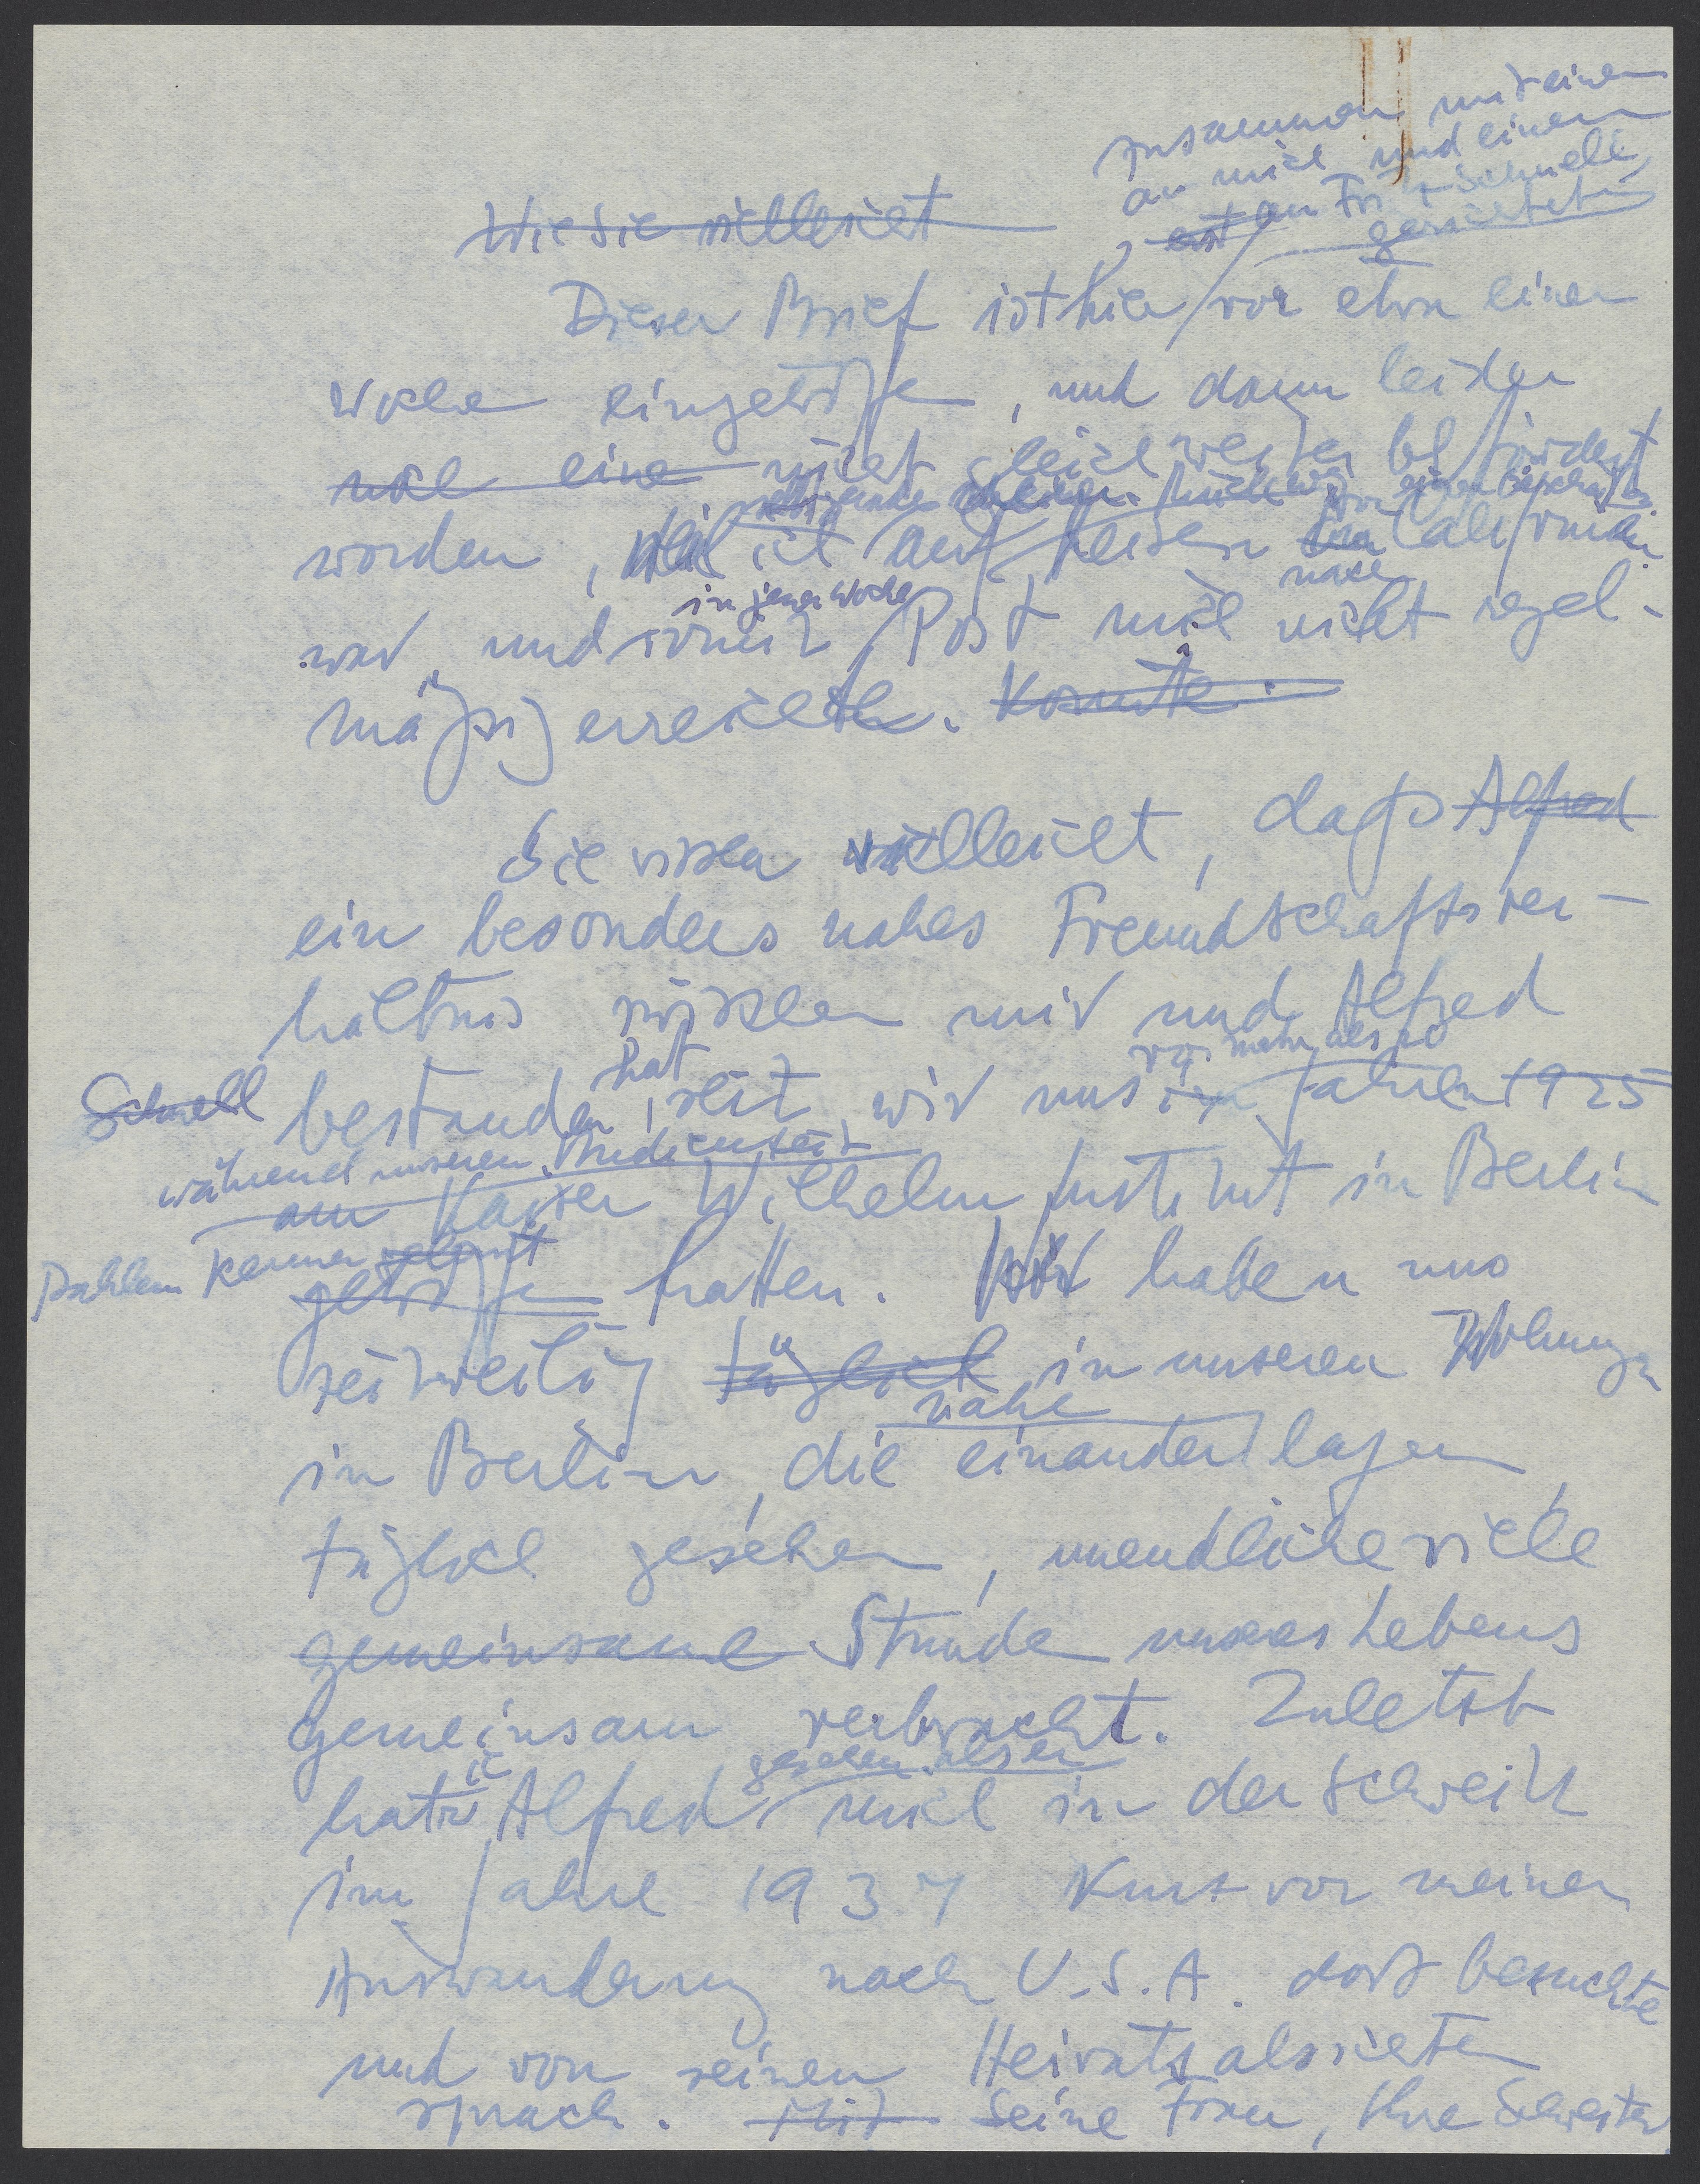 zusammen mit einem
an mich und einem
erst an Fritz Schnell,
gerichtet
Wie Sie vielleicht
Dieser Brief ist hier vor etwa einer
Woche eingetroffen, und dann leider
noch eine nicht gleich weiter befördert
worden, weil ich auf Reisen von Californien
nach
in jener Woche
war, und somit Post mich nicht regel-
mäßig erreichte. Konnte.
Sie wissen vielleicht, dass Alfred
ein besonders nahes Freundschaftsver-
hältnis zwischen mir und Alfred
hat
vor mehr als 10
Schnell bestanden, seit wir uns in Jahren 1925
während unserer Studienzeit
am Kaiser Wilhelm Institut in Berlin
Dahlem kennen gelernt
getroffen hatten. Wir haben uns
zeitweilig täglich in unseren Wohnungen
nahe
in Berlin, die einander lagen,
täglich gesehen, unendliche viele
gemeinsame Stunde unseres Lebens
gemeinsam verbracht. Zuletzt
ich
gesehen als er
hatte Alfred mich in der Schweiz
im Jahre 1937 kurz vor meiner
Auswanderung nach U.S.A. dort besuchte
und von seinen Heiratsabsichten
sprach. Mit Seine Frau, Ihre Schwester